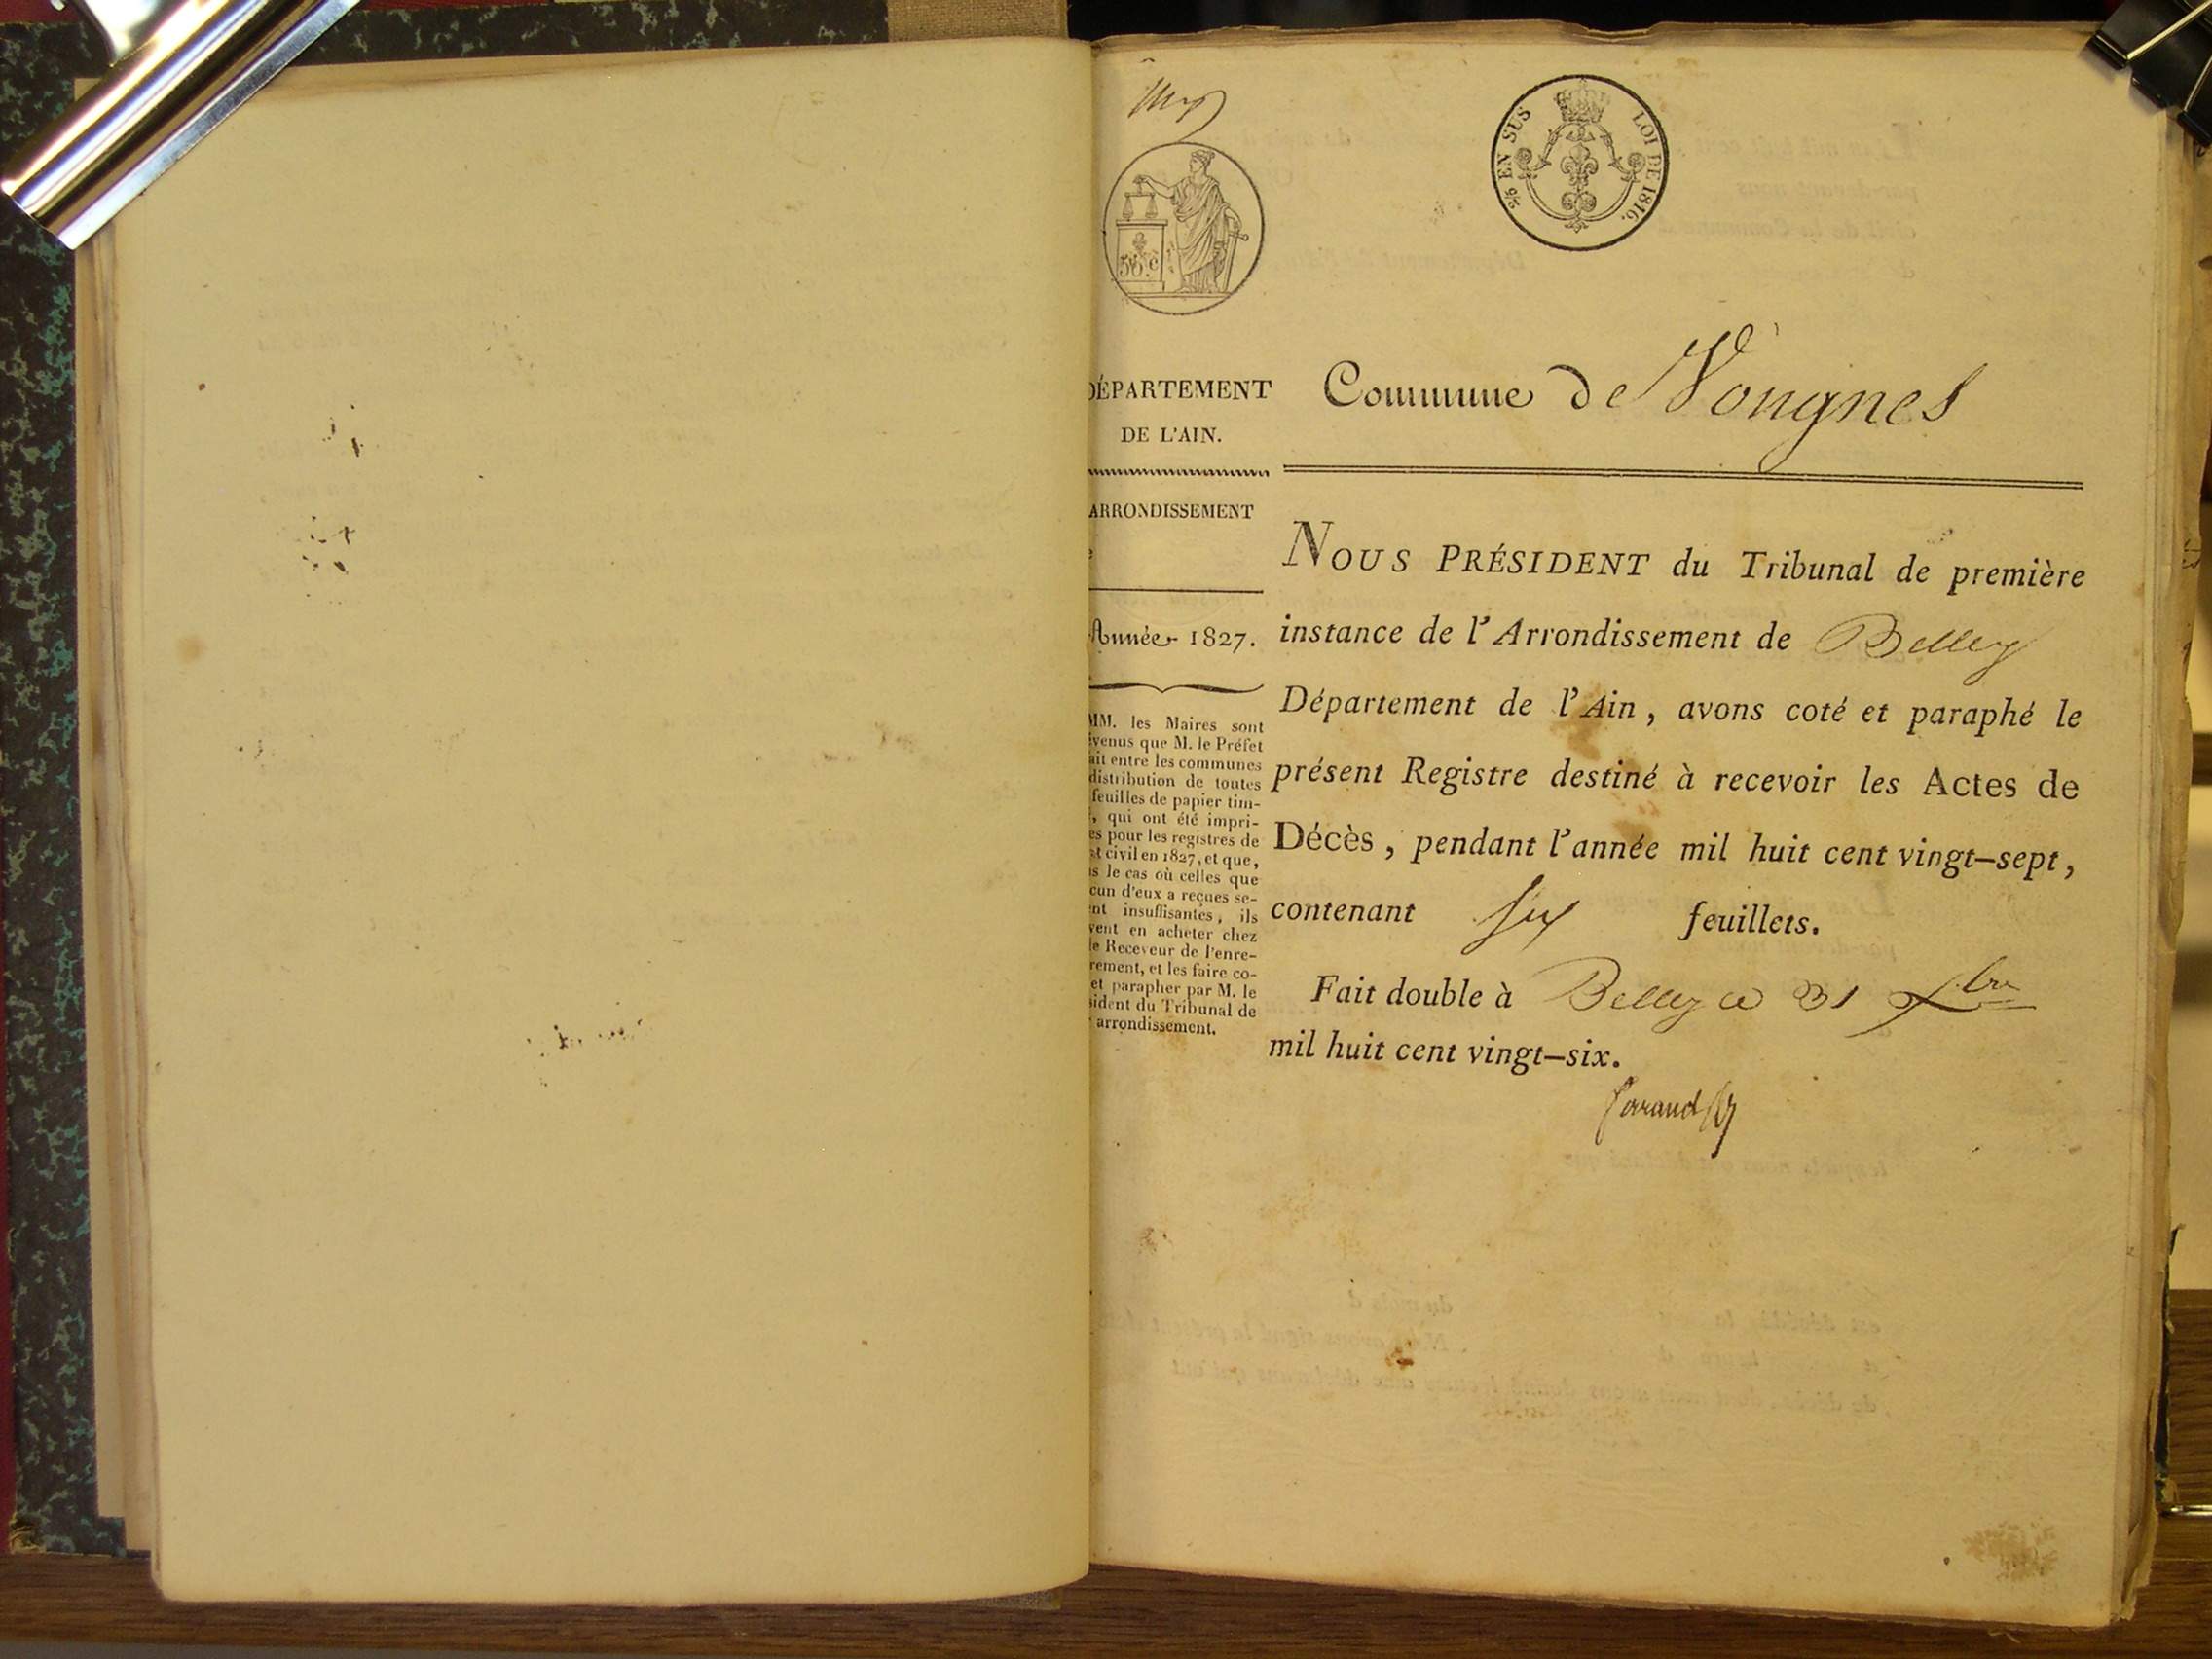 EN SUS LOI DE 1816.
DÉPARTEMENT
DE L'AIN.
Commune de Vongnes
ARRONDISSEMENT
Année 1827.
MM. les Maires sont
venus que M. le Préfet
ait entre les communes
distribution de toutes
feuilles de papier tim-
, qui ont été impri-
es pour les registres de
t civil en 1827, et que,
s le cas où celles que
cun d'eux a reçues se-
nt insuffisantes, ils
vent en acheter chez
le Receveur de l'enre-
rement, et les faire co-
et parapher par M. le
sident du Tribunal de
arrondissement.
NOUS PRÉSIDENT du Tribunal de première
instance de l'Arrondissement de Belley
Département de l'Ain, avons coté et paraphé le
présent Registre destiné à recevoir les Actes de
Décès, pendant l'année mil huit cent vingt-sept,
contenant six feuillets.
Fait double à Belley ce 31 Xbre
mil huit cent vingt-six.